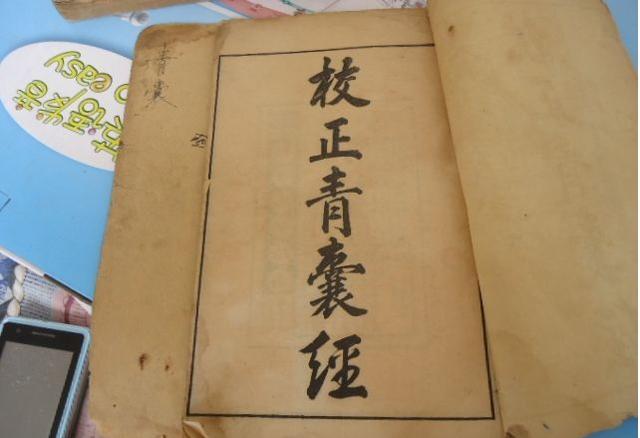 校正青囊經
青囊
全
easy